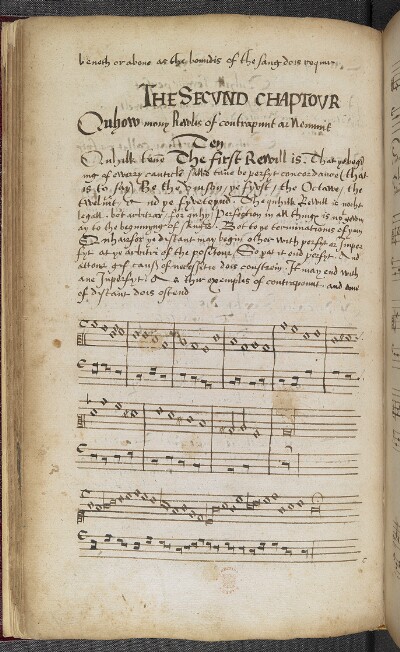 beneth or abone as the boundis of the sang dois requir
THE SECVND CHAPTOVR
Quhow mony Rewlis of contrapunt ar Neminit
Ten
Quhilk bene The first Rewll is. That ye begy
ing of ewerry cantick salbe perfyt concordance (that
is to say) Be the ye fyift, the Octawe, the
twelmt, And ye fyvetenid. The quhilk Rewill is nocht
legall bot arbitrar, for quhy, Perfection in all thingis is nocht
ay to the begynnyng of. Bot to ye terminations
Quhairfor ye distant may begin other with perfyt or Imper
fyt at ye arbitre of the positour, So yat it end perfyt. And
gif caus of necessitie dois constreny. It may end with
ane Inperfyt. exemples of contrapount and ane
of distant dois ostend